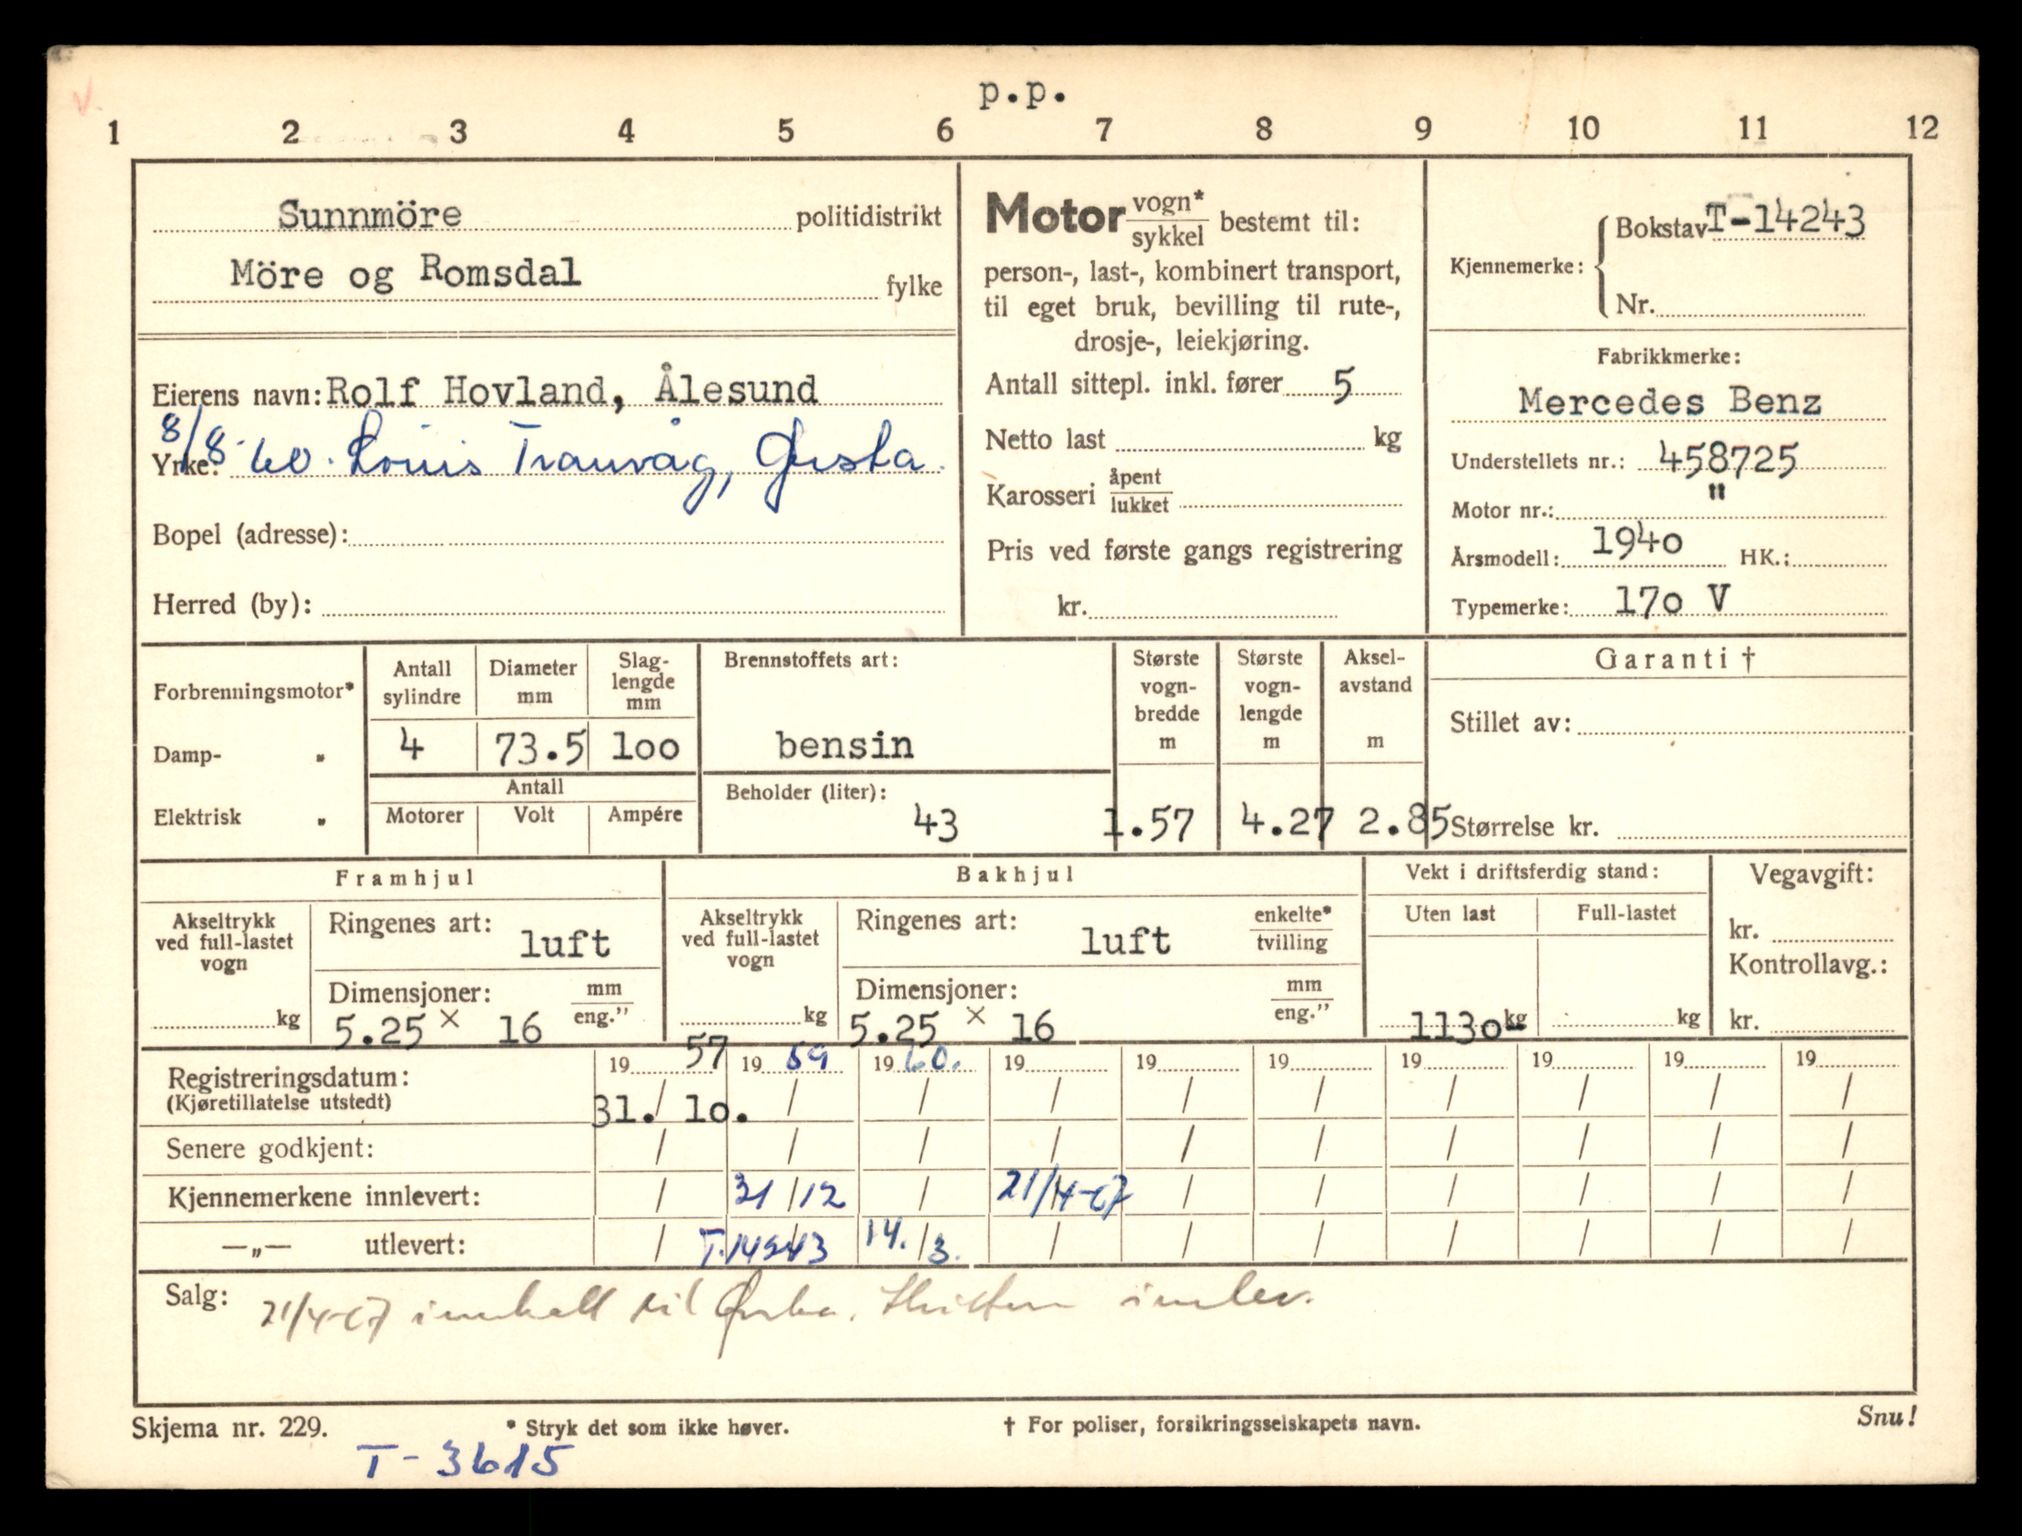 p.p.
1 2 3 4 5 6 7 8 9 10 11 12
Sunnmöre politidistrikt
Möre og Romsdal fylke
Eierens navn: Rolf Hovland, Ålesund
8/8-60. Louis Tranvåg, Ørsta.
Yrke:
Bopel (adresse):
Herred (by):
Motor vogn*/sykkel bestemt til:
person-, last-, kombinert transport,
til eget bruk, bevilling til rute-,
drosje-, leiekjøring.
Antall sittepl. inkl. fører 5
Netto last kg
Karosseri åpent/lukket
Pris ved første gangs registrering
kr.
Kjennemerke: Bokstav T-14243
Nr.
Fabrikkmerke:
Mercedes Benz
Understellets nr.: 458725
Motor nr.: "
Årsmodell: 1940 HK.:
Typemerke: 170 V
Forbrenningsmotor*
Damp- "
Elektrisk "
Antall sylindre
Diameter mm
Slag-lengde mm
4 73.5 100
Antall
Motorer Volt Ampére
Brennstoffets art:
bensin
Beholder (liter):
43
Største vogn-bredde m
1.57
Største vogn-lengde m
4.27
Aksel-avstand m
2.85
Garanti †
Stillet av:
Størrelse kr.
Framhjul
Akseltrykk
ved full-lastet
vogn
kg
Ringenes art:
luft
Dimensjoner: mm/eng."
5.25 × 16
Bakhjul
Akseltrykk
ved full-lastet
vogn
kg
Ringenes art: enkelte*/tvilling
luft
Dimensjoner: mm/eng."
5.25 × 16
Vekt i driftsferdig stand:
Uten last Full-lastet
1130- kg kg
Vegavgift:
kr.
Kontrollavg.:
kr.
19 57 19 59 19 60. 19 19 19 19 19 19 19
Registreringsdatum:
(Kjøretillatelse utstedt) 31. / 10. / / / / / / / / /
Senere godkjent: / / / / / / / / / /
Kjennemerkene innlevert: / 31/12 / 21/4-67 / / / / / /
—„— utlevert: / T.14243 14./3. / / / / / / /
Salg: 21/4-67 innkalt til Ørsta. innlev.
Skjema nr. 229. * Stryk det som ikke høver. † For poliser, forsikringsselskapets navn. Snu!
T-3615